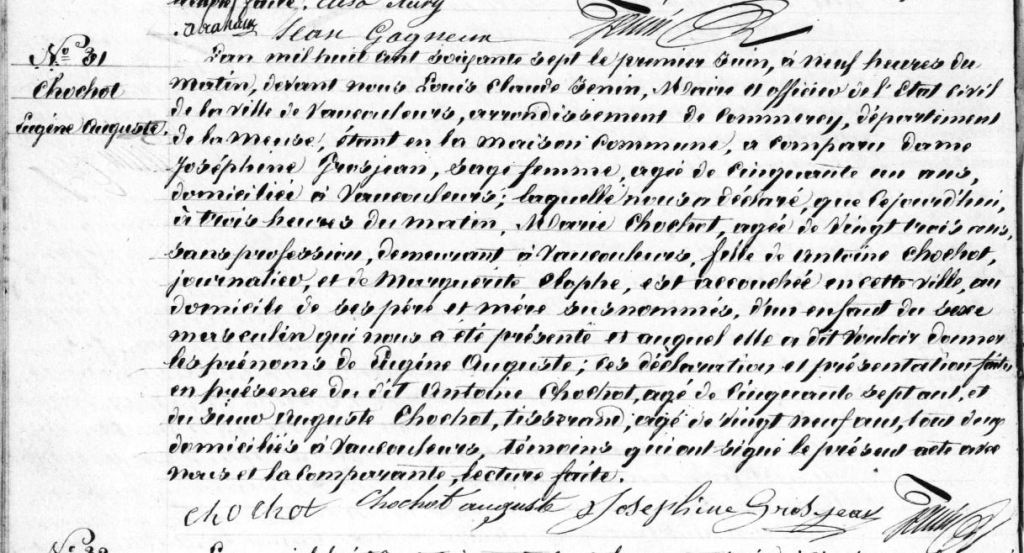 faite.
Jean Gagneux
Nº 31
Chochot
Eugène Auguste.
L'an mil huit cent soixante sept le premier Juin, à neuf heures du
matin, devant nous Louis Claude Jenin, Maire et officier de l'Etat civil
de la ville de Vaucouleurs, arrondissement de Commercy, département
de la Meuse, étant en la maison Commune, a comparu dame
Joséphine Grosjean, sage femme, agée de Cinquante un ans,
domiciliée à Vaucouleurs; laquelle nous a déclaré, que cejourd'hui,
à trois heures du matin, Marie Chochot, agée de Vingt trois ans,
sans profession, demeurant à Vaucouleurs, fille de Antoine Chochot,
journalier, et de Marguerite Clophe, est accouchée en cette ville, au
domicile de ses père et mère susnommés, d'un enfant du sexe
masculin qui nous a été présenté et auquel elle a dit Vouloir donner
les prénoms de Eugène Auguste; ces déclaration et présentation faites
en présence du dit Antoine Chochot, agé de Cinquante sept ans, et
du sieur Auguste Chochot, tisserand, agé de Vingt neuf ans, tous deux
domiciliés à Vaucouleurs, témoins qui ont signé le présent acte avec
nous et la Comparante, lecture faite.
chochot Chochot auguste Josephine Grosjean Jenin
Nº 32